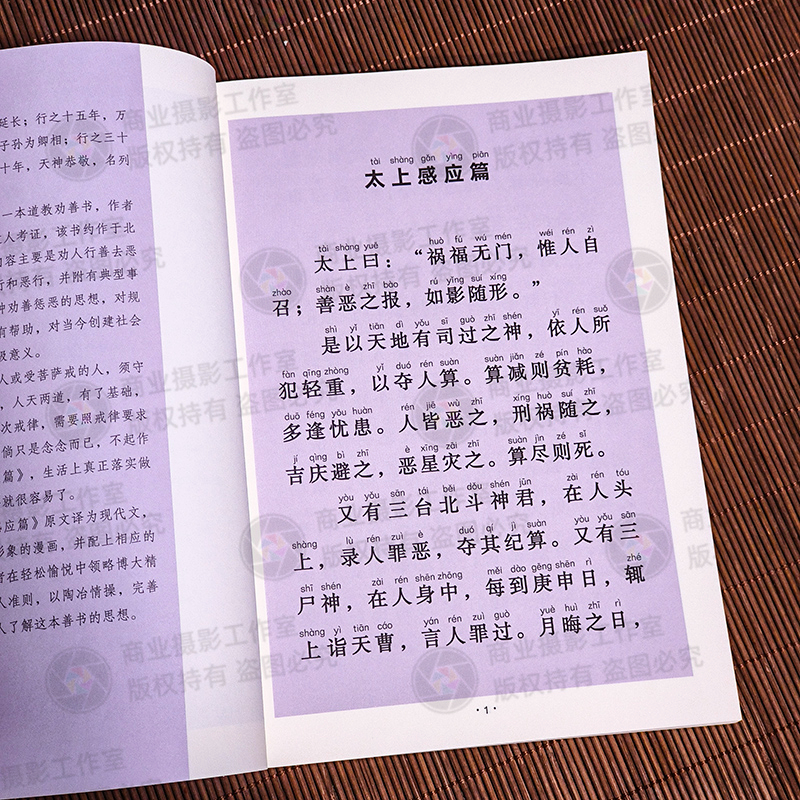 延长；行之十五年，万
子孙为卿相；行之三十
十年，天神恭敬，名列
一本道教劝善书，作者
人考证，该书约作于北
内容主要是劝人行善去恶
行和恶行，并附有典型事
种劝善惩恶的思想，对规
有帮助，对当今创建社会
极意义。
人或受菩萨戒的人，须守
，人天两道，有了基础，
次戒律，需要照戒律要求
倘只是念念而已，不起作
篇》，生活上真正落实做
就很容易了。
应篇》原文译为现代文，
形象的漫画，并配上相应的
者在轻松愉悦中领略博大精
人准则，以陶冶情操，完善
人了解这本善书的思想。
tài shàng gǎn yìng piān
太上感应篇
tài shàng yuē huò fú wú mén wéi rén zì
太上曰：“祸福无门，惟人自
zhào shàn è zhī bào rú yǐng suí xíng
召；善恶之报，如影随形。”
shì yǐ tiān dì yǒu sī guò zhī shén yī rén suǒ
是以天地有司过之神，依人所
fàn qīng zhòng yǐ duó rén suàn suàn jiǎn zé pín hào
犯轻重，以夺人算。算减则贫耗，
duō féng yōu huàn rén jiē wù zhī xíng huò suí zhī
多逢忧患。人皆恶之，刑祸随之，
jí qìng bì zhī è xīng zāi zhī suàn jìn zé sǐ
吉庆避之，恶星灾之。算尽则死。
yòu yǒu sān tái běi dǒu shén jūn zài rén tóu
又有三台北斗神君，在人头
shàng lù rén zuì è duó qí jì suàn yòu yǒu sān
上，录人罪恶，夺其纪算。又有三
shī shén zài rén shēn zhōng měi dào gēng shēn rì zhé
尸神，在人身中，每到庚申日，辄
shàng yì tiān cáo yán rén zuì guò yuè huì zhī rì
上诣天曹，言人罪过。月晦之日，
·1·
商业摄影工作室
版权持有 盗图必究